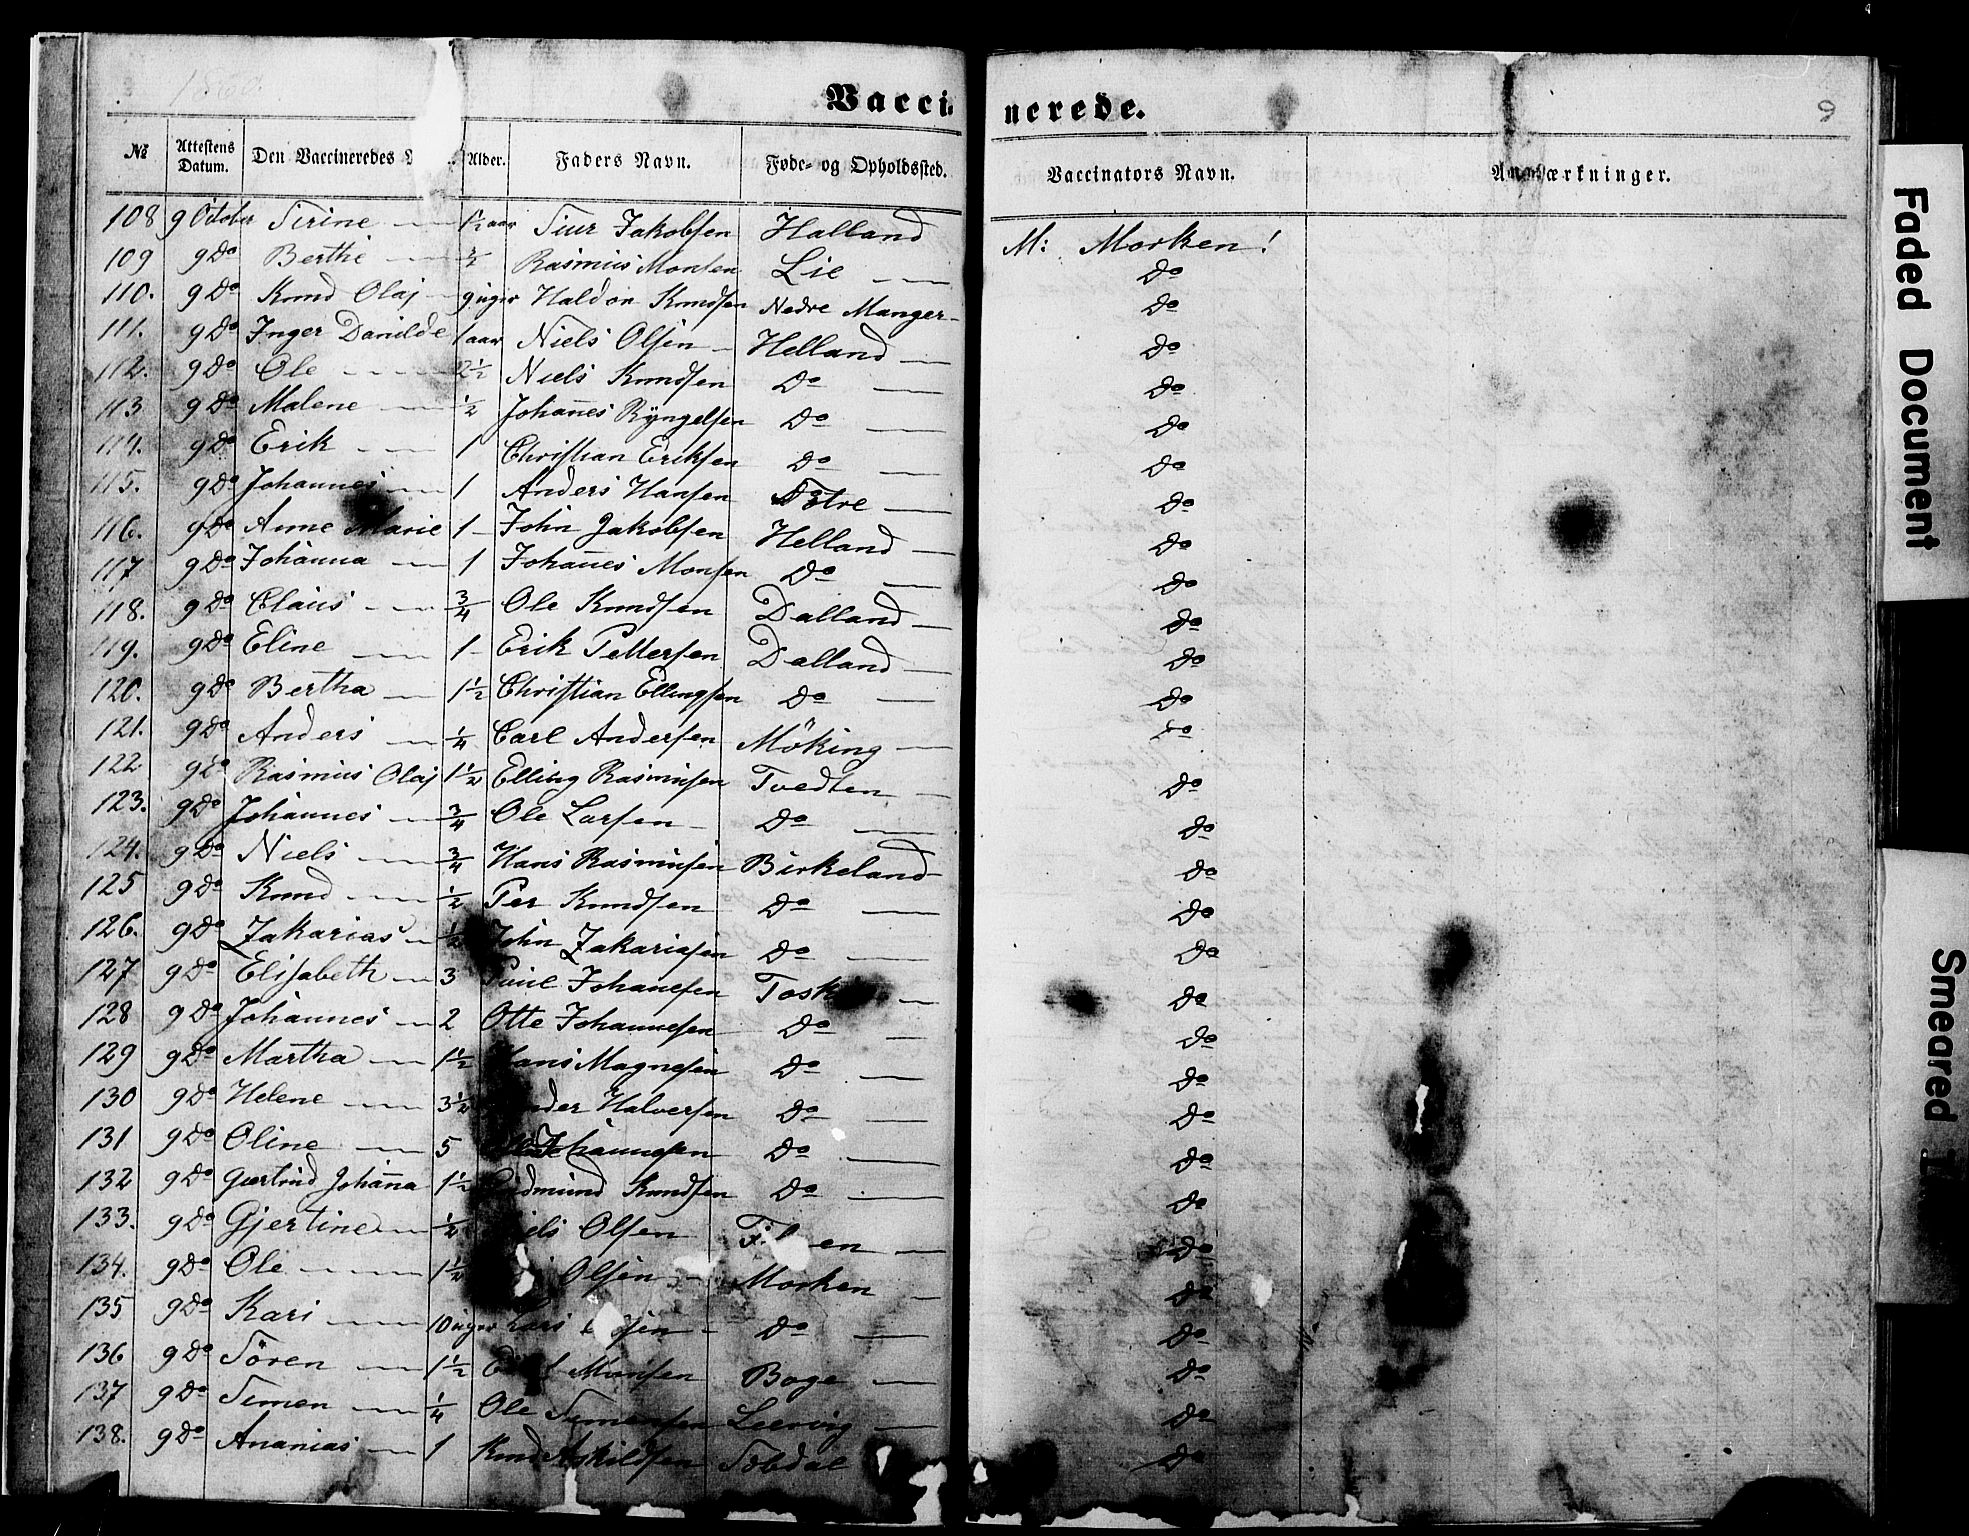 1860.
Vaccinerede.
9
№ Attestens Datum. Den Vaccineredes Alder. Faders Navn. Føde- og Opholdssted. Vaccinators Navn. Anmærkninger.
108 9 October Sirine 1½ aar Siur Jakobsen Halland M: Morken!
109 9 Do Berthe ½ Rasmus Monsen Lie Do
110. 9 Do Knud Olaj 9 uger Haldor Knudsen Nedre Manger Do
111. 9 Do Inger Danilde 1 aar Niels Olsen Helland Do
112. 9 Do Ole 2½ Niels Knudsen Do Do
113 9 Do Malene ½ Johañes Ryngelsen Do Do
114. 9 Do Erik 1 Christian Eriksen Do Do
115. 9 Do Johannes 1 Anders Hansen Totre Do
116. 9 Do Anne Marie 1 John Jakobsen Helland Do
117 9 Do Johanna 1 Johañes Monsen Do Do
118. 9 Do Claus ¾ Ole Knudsen Dalland Do
119. 9 Do Eline 1 Erik Pettersen Dalland Do
120. 9 Do Bertha 1½ Christian Ellingsen Do Do
121. 9 Do Anders ¼ Carl Andersen Möking Do
122 9 Do Rasmus Olaj 1½ Elling Rasmussen Tvedten Do
123. 9 Do Johannes ¾ Ole Larsen Do Do
124. 9 Do Niels ¾ Hans Rasmussen Birkeland Do
125 9 Do Knud ½ Per Knudsen Do Do
126. 9 Do Zakarias ½ John Zakariasen Do Do
127 9 Do Elisabeth 3 Paul Johanesen Do
128 9 Do Johannes 2 Otte Johannesen Do Do
129 9 Do Martha 1½ Hans Magnesen Do Do
130 9 Do Helene 3½ Halversen Do Do
131 9 Do Oline 5 Johannesen Do Do
132 9 Do Gjertrud Johaña 1½ Gudmund Knudsen Do Do
133. 9 Do Gjertine ½ Niels Olsen Do
134. 9 Do Ole 1½ Olsen Morken Do
135 9 Do Kari 10 uger Lars Do Do
136 9 Do Sören 1½ Monsen Boge Do
137 9 Do Simen ¼ Ole Simensen Leervig Do
138. 9 Do Ananias 1 Knud Askildsen Tobdal Do
Faded Document
Smeared